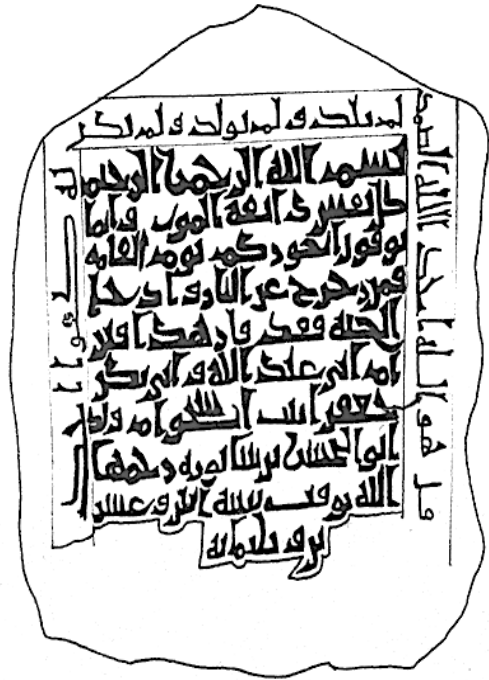 قل هو الله احد الله الصمد
لم يلد و لم يولد و لم يكن
له كفوا احد
بسم الله الرحمن الرحيم
كل نفس ذائقة الموت وانما
توفون اجوركم يوم القيامه
فمن زحزح عن النار وادخل
الجنة فقد فاز هذا قبر
ام ابي عبد الله و ابي بكر
جعفر ام ولد
ابو الحسن بن رحمها
الله توفيت سنة و عشر
ين و ثلثمائة